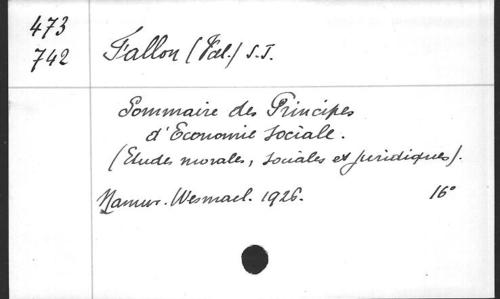 473
742
Fallon (Val.) S.J.
Sommaire des Principes
d'Economie sociale.
(Etudes morales, sociales et juridiques).
Namur. Wesmael. 1926. 16°